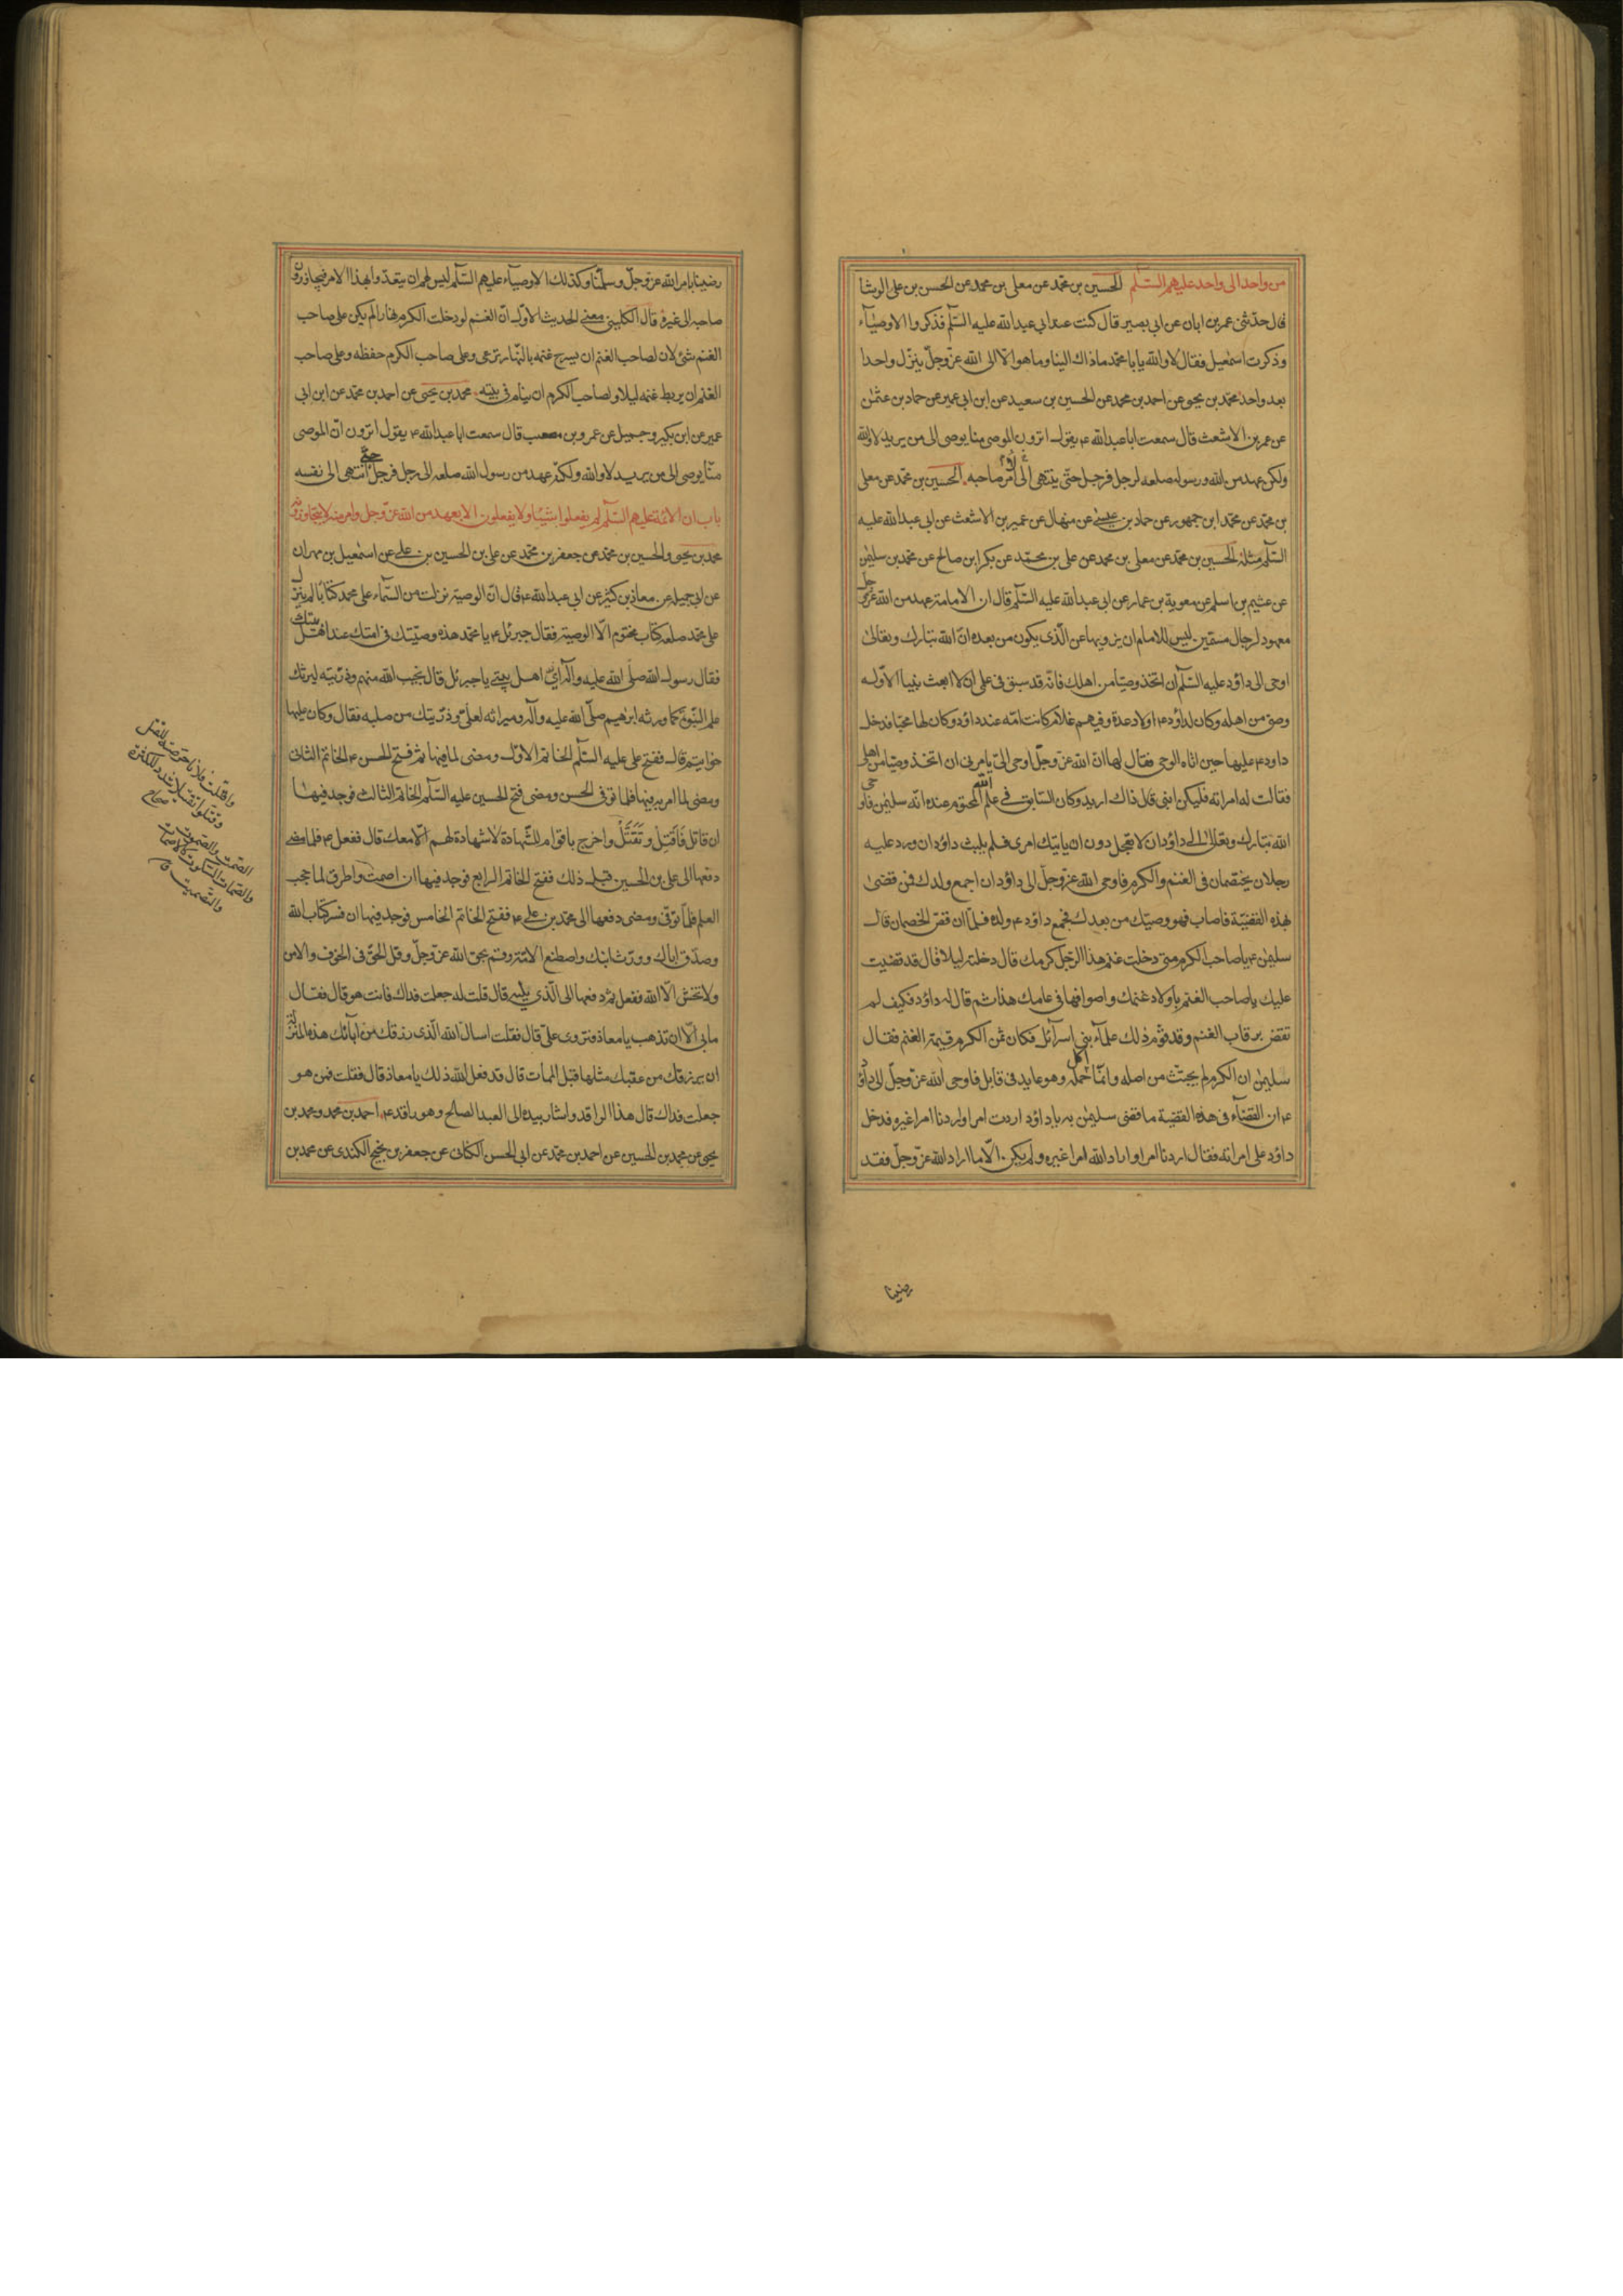 من واحد الى واحد عليهم السلم الحسين بن محمد عن معلى بن محمد عن الحسن بن على الوشا
قال حدثنى عمر بن ابان عن ابى بصير قال كنت عند ابى عبدالله عليه السلم فذكروا الاوصياء
وذكرت اسمعيل فقال لا والله يابا محمد ماذاك الينا وما هو الا الى الله عز وجل ينزل واحدا
بعد واحد محمد بن يحيى عن احمد بن محمد عن الحسين بن سعيد عن ابن ابى عمير عن حماد بن عثمن
عن عمر بن الاشعث قال سمعت اباعبدالله ع يقول اترون الموصى منا يوصى الى من يريد لا والله
ولكن عهد من الله ورسوله صلعم لرجل فرجل حتى ينتهى الى امر صاحبه الحسين بن محمد عن معلى
بن محمد عن محمد ابن جمهور عن حماد بن عيسى عن منهال عن عمير بن الاشعث عن ابى عبدالله عليه
السلم مثله الحسين بن محمد عن معلى بن محمد عن على بن محمد عن بكر ابن صالح عن محمد بن سليمن
عن عثيم بن اسلم عن معوية بن عمار عن ابى عبدالله عليه السلم قال ان الامامة عهد من الله عز وجل
معهود لرجال مسمين ليس للامام ان يزويها عن الذى يكون من بعده ان الله تبارك وتعالى
اوحى الى داؤد عليه السلم ان اتخذ وصيا من اهلك فانه قد سبق فى علمى ان لا ابعث نبيا الا وله
وصى من اهله وكان لداؤد ع اولاد عدة وفيهم غلام كانت امه عند داؤد وكان لها محبا فدخل
داود ع عليها حين اتاه الوحى فقال لها ان الله عز وجل اوحى الى يامرنى ان اتخذ وصيا من اهلى
فقالت له امراته فليكن ابنى قال ذاك اريد وكان السابق فى علم الله المحتوم عنده انه سليمن فاوحى
الله تبارك وتعالى الى داؤد ان لا تعجل دون ان ياتيك امرى فلم يلبث داؤد ان ورد عليه
رجلان يختصمان فى الغنم والكرم فاوحى الله عز وجل الى داؤد ان اجمع ولدك فمن قضى
بهذه القضية فاصاب فهو وصيك من بعدك فجمع داؤد ع ولده فلما ان قص الخصمان قال
سليمن ع يا صاحب الكرم متى دخلت غنم هذا الرجل كرمك قال دخلته ليلا قال قد قضيت
عليك يا صاحب الغنم باولاد غنمك واصوافها فى عامك هذا ثم قال له داؤد فكيف لم
تقض برقاب الغنم وقد قوم ذلك علماء بنى اسرائل فكان ثمن الكرم قيمة الغنم فقال
سليمن ان الكرم لم يجتث من اصله وانما اكل حمله وهو عايد فى قابل فاوحى الله عز وجل الى داؤد
ع ان القضاء فى هذه القضية ما قضى سليمن به يا داؤد اردت امرا واردنا امرا غيره فدخل
داؤد على امراته فقال اردنا امرا واراد الله امرا غيره ولم يكن الا ما اراد الله عز وجل فقد
رضينا
رضينا بامر الله عز وجل وسلمنا وكذلك الاوصياء عليهم السلم ليس لهم ان يتعدوا بهذا الامر فيجاوزون
صاحبه الى غيره قال الكلينى معنى الحديث الاول ان الغنم لو دخلت الكرم نهارا لم يكن على صاحب
الغنم شئ لان لصاحب الغنم ان يسرح غنمه بالنهار ترعى وعلى صاحب الكرم حفظه وعلى صاحب
الغنم ان يربط غنمه ليلا ولصاحب الكرم ان ينام فى بيته محمد بن يحيى عن احمد بن محمد عن ابن ابى
عمير عن ابن بكير وجميل عن عمرو بن مصعب قال سمعت اباعبدالله ع يقول اترون ان الموصى
منا يوصى الى من يريد لا والله ولكنه عهد من رسول الله صلعم الى رجل فرجل حتى انتهى الى نفسه
باب ان الائمة عليهم السلم لم يفعلوا شيئا ولا يفعلون الا بعهد من الله عز وجل وامر منه لا يتجاوزونه
محمد بن يحيى والحسين بن محمد عن جعفر بن محمد عن على بن الحسين بن على عن اسمعيل بن مهران
عن ابى جميله عن معاذ بن كثير عن ابى عبدالله ع قال ان الوصية نزلت من السماء على محمد كتابا لم ينزل
على محمد صلعم كتاب مختوم الا الوصية فقال جبرئل ع يا محمد هذه وصيتك فى امتك عند اهل بيتك
فقال رسول الله صلى الله عليه وآله اى اهل بيتى يا جبرئل قال نجيب الله منهم وذريته ليرثك
علم النبوة كما ورثه ابرهيم صلى الله عليه وآله وميراثه لعلى وذريتك من صلبه فقال وكان عليها
خواتيم قال ففتح على عليه السلم الخاتم الاول ومضى لما فيها ثم فتح الحسن ع الخاتم الثانى
ومضى لما امر به فيها فلما توفى الحسن ومضى فتح الحسين عليه السلم الخاتم الثالث فوجد فيها
ان قاتل فاقتل وتقتل واخرج باقوام للشهادة لا شهادة لهم الا معك قال ففعل ع فلما مضى
دفعها الى على بن الحسين قبل ذلك ففتح الخاتم الرابع فوجد فيها ان اصمت واطرق لما حجب
العلم فلما توفى ومضى دفعها الى محمد بن على ع ففتح الخاتم الخامس فوجد فيها ان فسر كتاب الله
وصدق اباك وورث ابنك واصطنع الامة وقم بحق الله عز وجل وقل الحق فى الخوف والامن
ولا تخش الا الله ففعل ثم دفعها الى الذى يليه قال قلت له جعلت فداك فانت هو قال فقال
مابى الا ان تذهب يا معاذ فتروى على قال فقلت اسال الله الذى رزقك من آبائك هذه المنزلة
ان يرزقك من عقبك مثلها قبل الممات قال قد فعل الله ذلك يا معاذ قال فقلت فمن هو
جعلت فداك قال هذا الراقد واشار بيده الى العبد الصالح وهو راقد ع احمد بن محمد ومحمد بن
يحيى عن محمد بن الحسين عن احمد بن محمد عن ابى الحسن الكنانى عن جعفر بن نجيح الكندى عن محمد بن
واقتلت فلانا عرضته للقتل
وقتلوا تقتيلا شدد للكثرة
صحاح
الصمت والصموت
والصمات السكوت كالاصمات
والتصميت ق